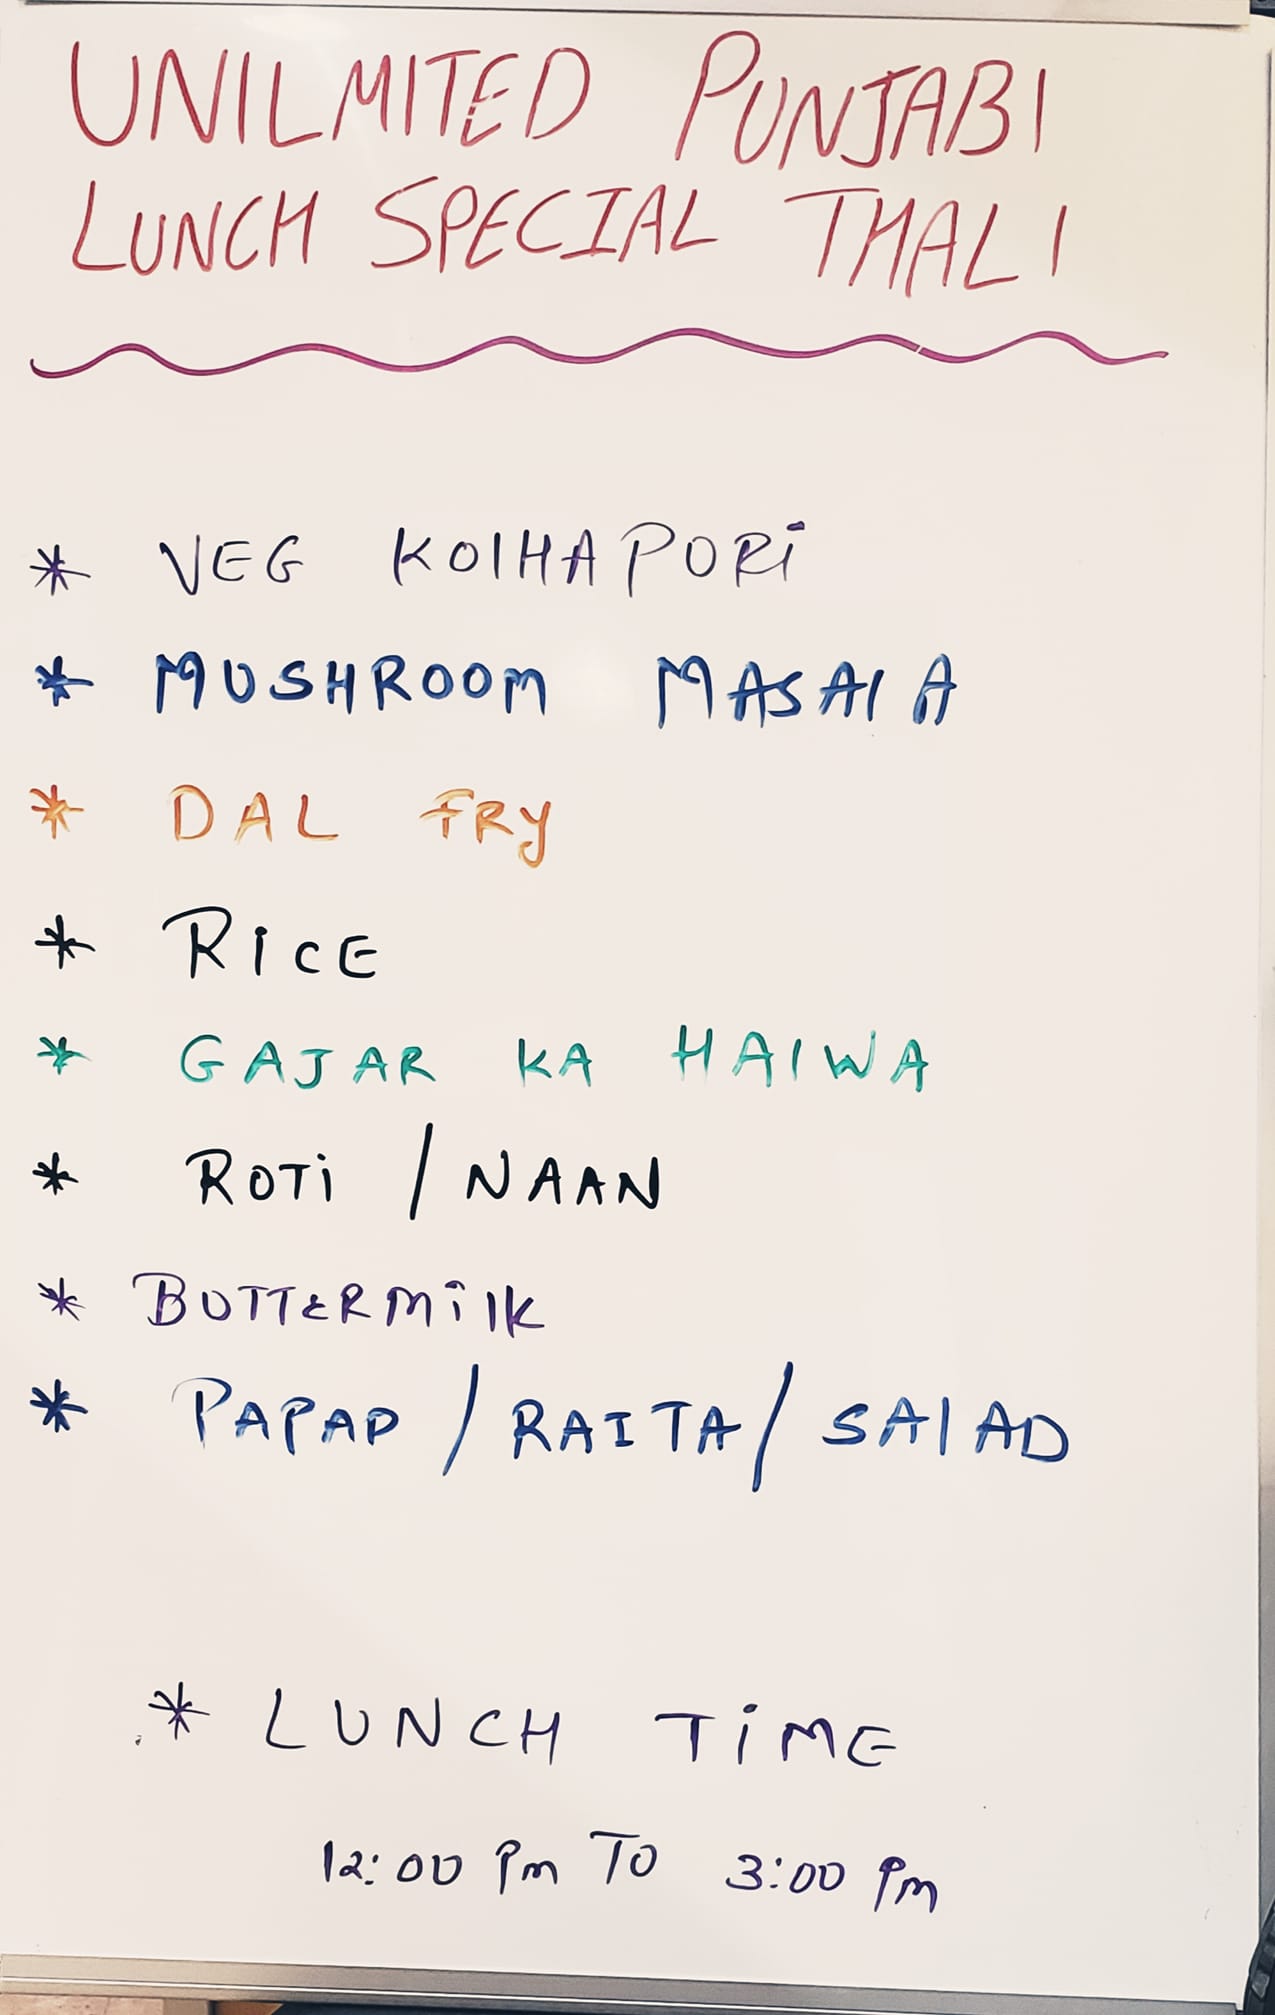 UNILMITED PUNJABI
LUNCH SPECIAL THALI
* VEG KOlHAPURi
* MUSHROOM MASAlA
* DAL fRy
* RiCE
* GAJAR KA HAlWA
* ROTi / NAAN
* BUTTERMilK
* PAPAD / RAITA / SAlAD
* LUNCH TiME
12:00 Pm TO 3:00 Pm